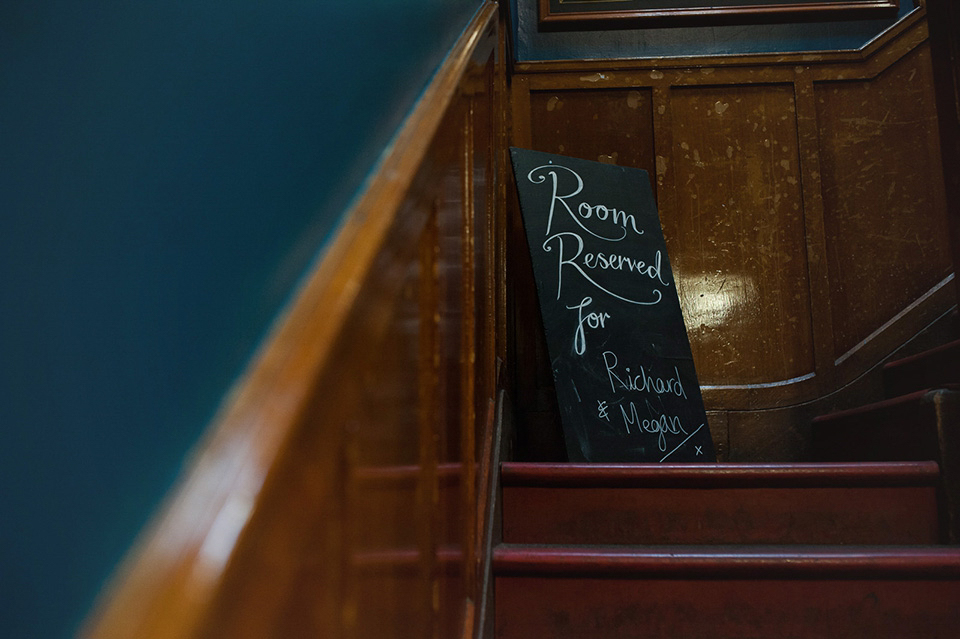 Room
Reserved
for
Richard
& Megan
x